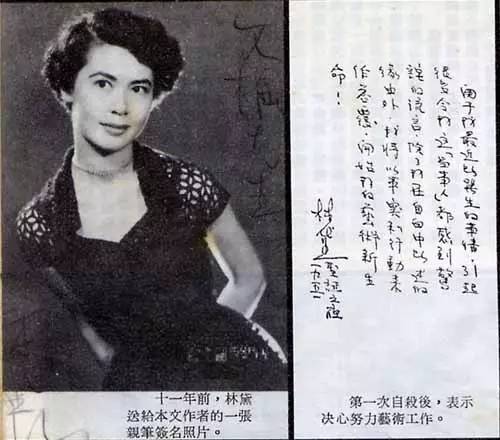 十一年前，林黛
送給本文作者的一張
親筆簽名照片。
最近所發生的事情，引起
很多令我這「當事人」都感到驚
訝的流言，除了我在自由中所述的
緣由外，我將以事實和行動來
作答覆，開始我的藝術新生
命！
林黛
第一次自殺後，表示
决心努力藝術工作。